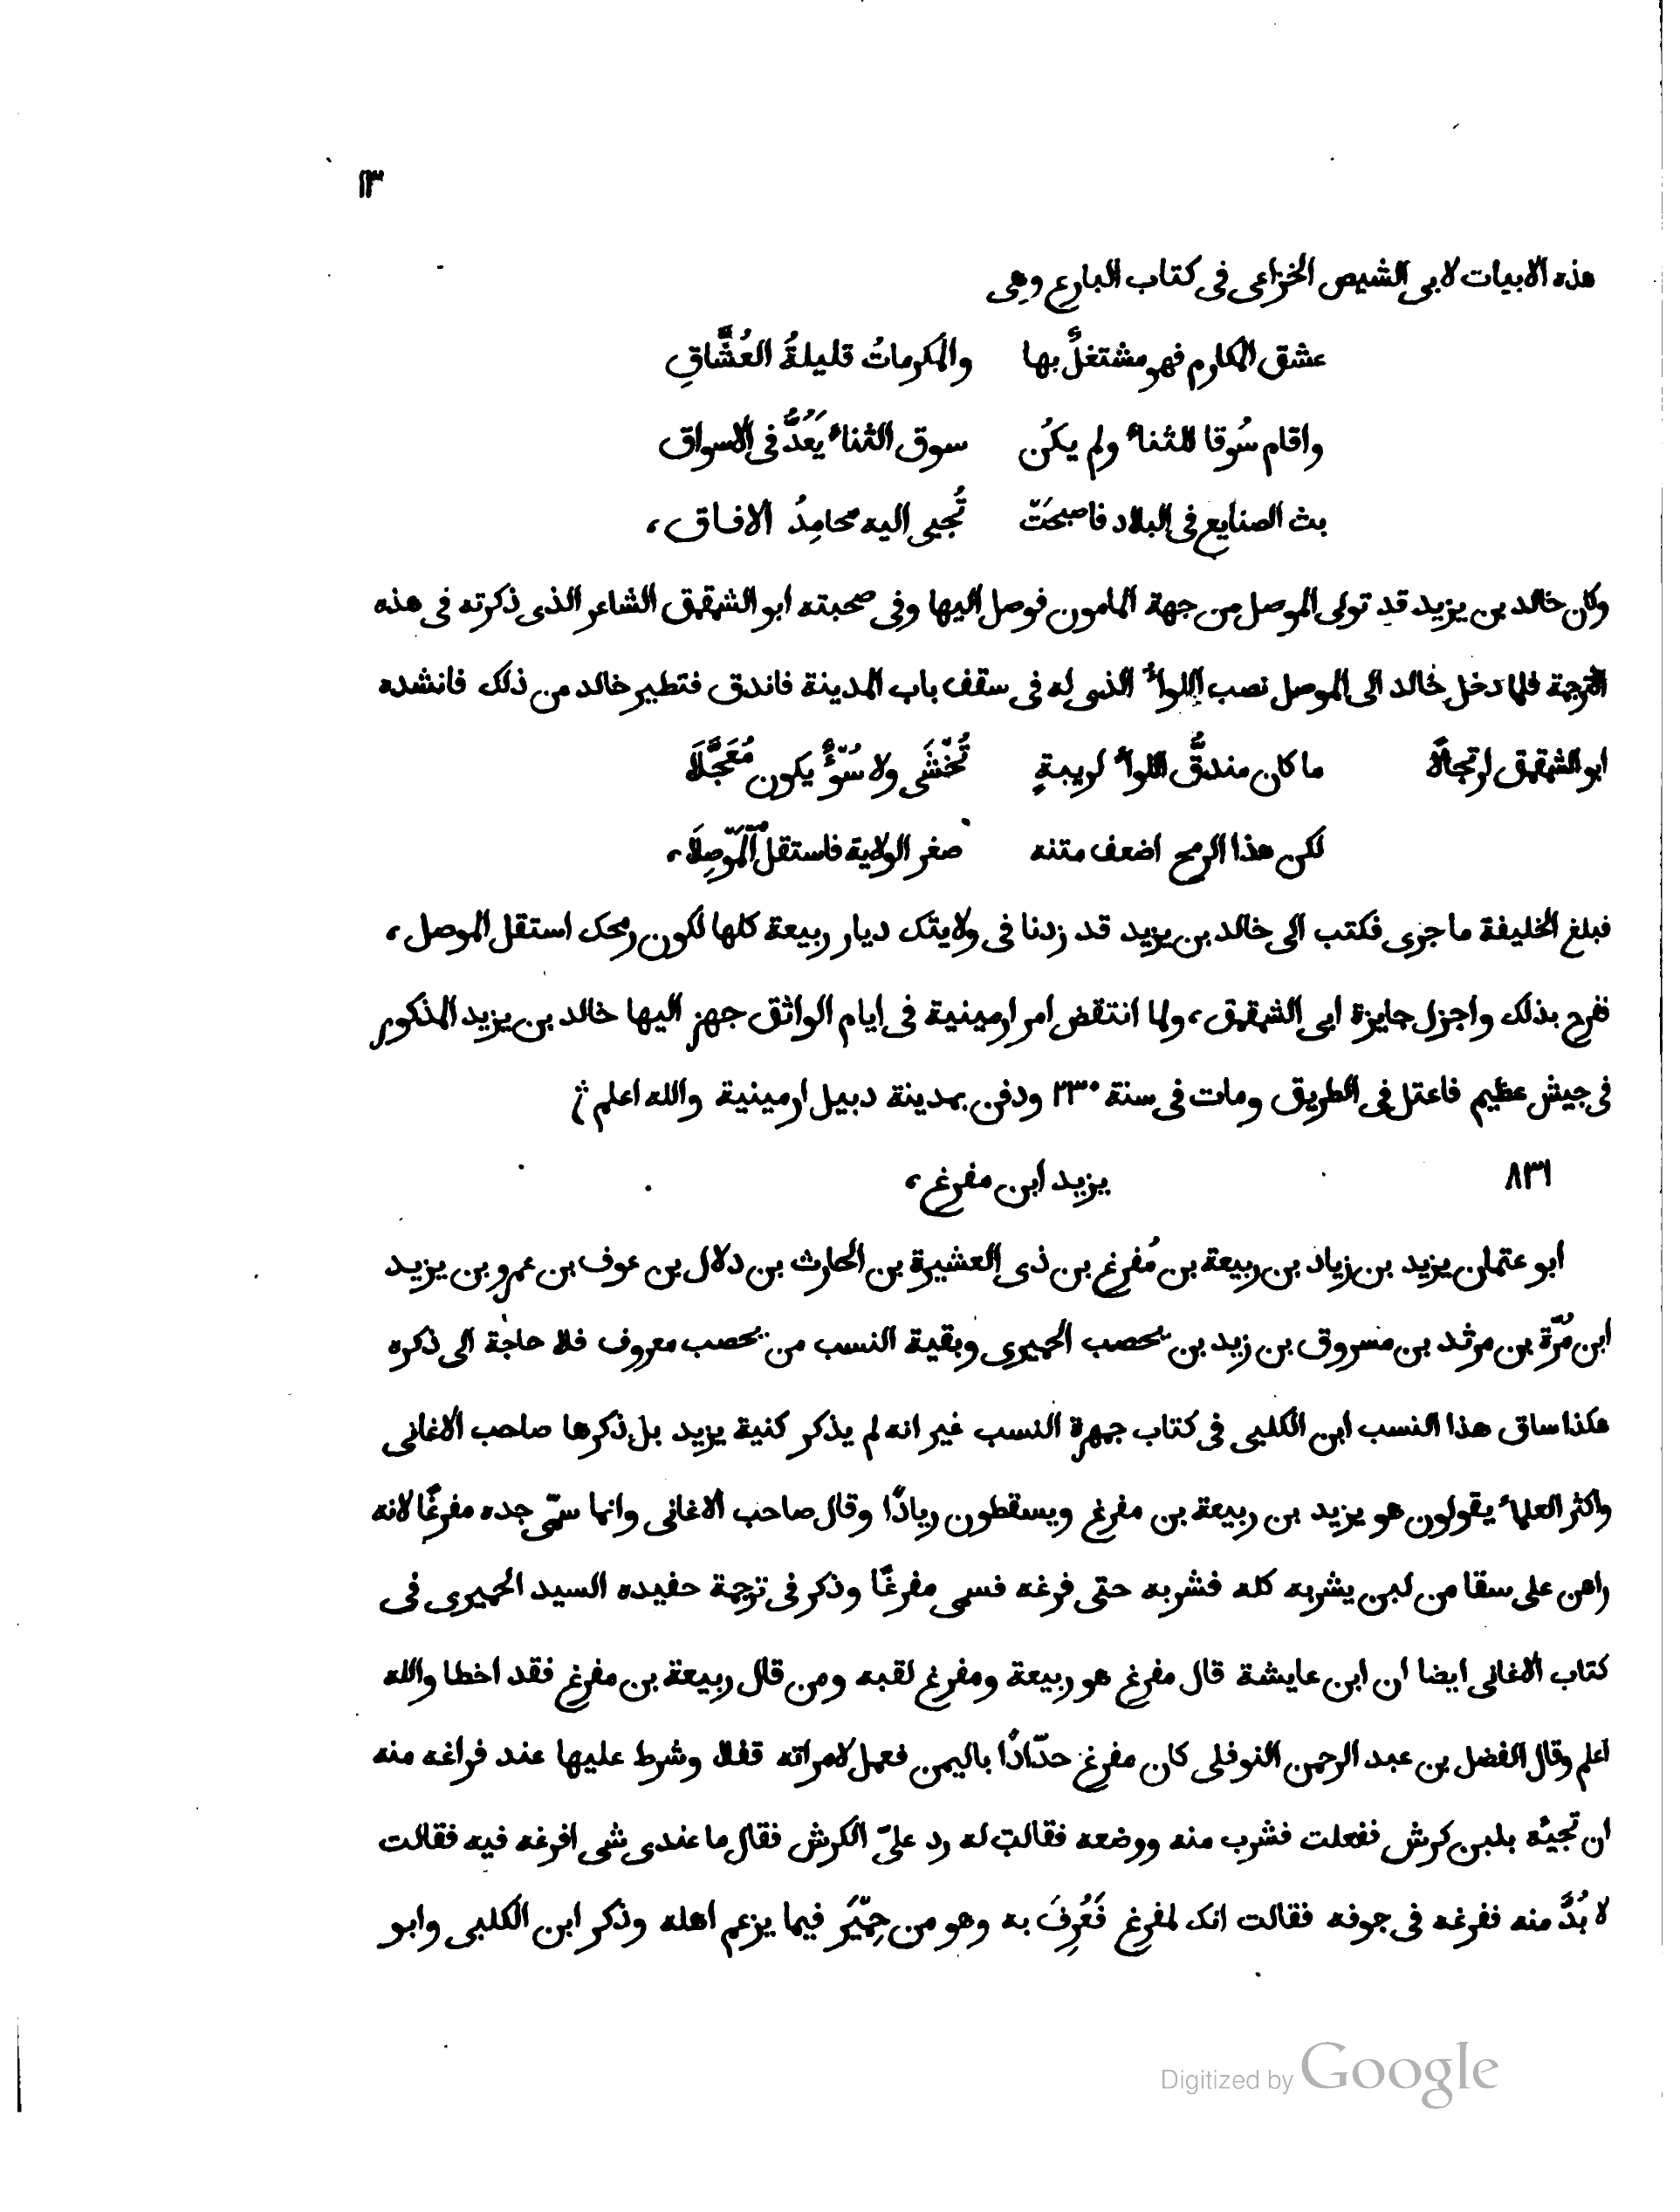 ١٣
هذه الابيات لابى الشيص الخزاعى فى كتاب البارع وهى
عشق المكارم فهو مشتغلٌ بها والمكرماتُ قليلةُ العُشَّاقِ
واقام سُوقا للثناء ولم يكُن سوق الثناء يَعُدُّ فى الاسواق
بث الصنايع فى البلاد فاصبحَتْ تُجبى اليه محامِدُ الافاق ،
وكان خالد بن يزيد قد تولى الموصل من جهة المامون فوصل اليها وفى صحبته ابو الشمقمق الشاعر الذى ذكرته فى هذه
الترجمة فلما دخل خالد الى الموصل نصب اللواء الذى له فى سقف باب المدينة فاندق فتطير خالد من ذلك فانشده
ابو الشمقمق ارتجالًا ما كان مندقُّ اللواء لريبةٍ تُخْشَى ولا سُوْءٌ يكون مُعَجَّلَا
لكن هذا الرمح اضعف متنه صغر الولاية فاستقل اَلْمَوْصِلَا ،
فبلغ الخليفة ما جرى فكتب الى خالد بن يزيد قد زدنا فى ولايتك ديار ربيعة كلها لكون رمحك استقل الموصل ،
ففرح بذلك واجزل جايزة ابى الشمقمق ، ولما انتقض امر ارمينية فى ايام الواثق جهز اليها خالد بن يزيد المذكور
فى جيش عظيم فاعتل فى الطريق ومات فى سنة ٢٣٠ ودفن بمدينة دبيل ارمينية والله اعلم ؛
٨٣١ يزيد ابن مفرغ ،
ابو عثمان يزيد بن زياد بن ربيعة بن مُفرغ بن ذى العشيرة بن الحارث بن دلال بن عوف بن عمرو بن يزيد
ابن مُرّة بن مرثد بن مسروق بن زيد بن يحصب الحميرى وبقية النسب من يحصب معروف فلا حاجة الى ذكره
هكذا ساق هذا النسب ابن الكلبى فى كتاب جمهرة النسب غير انه لم يذكر كنية يزيد بل ذكرها صاحب الاغانى
واكثر العلماء يقولون هو يزيد بن ربيعة بن مفرغ ويسقطون زيادًا وقال صاحب الاغانى وانما سمّى جده مفرغًا لانه
راهن على سقا من لبن يشربه كله فشربه حتى فرغه فسمى مفرغًا وذكر فى ترجمة حفيده السيد الحميرى فى
كتاب الاغانى ايضا ان ابن عايشة قال مفرغ هو ربيعة ومفرغ لقبه ومن قال ربيعة بن مفرغ فقد اخطا والله
اعلم وقال الفضل بن عبد الرحمن النوفلى كان مفرغ حدّادًا باليمن فعمل لامراته قفلا وشرط عليها عند فراغه منه
ان تجيئه بلبن كرش ففعلت فشرب منه ووضعه فقالت له رد علىّ الكرش فقال ما عندى شى افرغه فيه فقالت
لا بُدَّ منه ففرغه فى جوفه فقالت انك لمفرغ فَعُرِفَ به وهو من حِمْيَر فيما يزعم اهله وذكر ابن الكلبى وابو
Digitized by Google